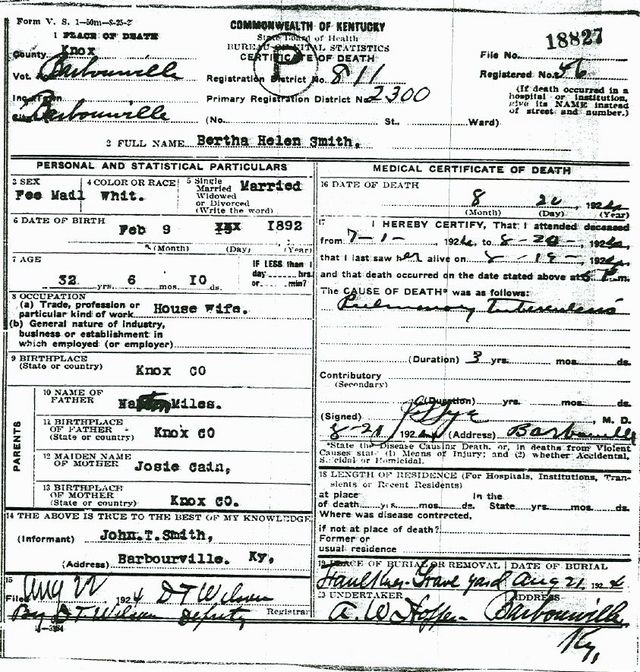 Form V. S. 1-50m-8-25-2
COMMONWEALTH OF KENTUCKY
State Board of Health
BUREAU OF VITAL STATISTICS
CERTIFICATE OF DEATH
18827
1 PLACE OF DEATH
County Knox
File No.
Vot. Barbourville
Registration District No. 811
Registered No. 46
Barbourville
Primary Registration District No. 2300
(No. St., Ward)
(If death occurred in a hospital or institution, give its NAME instead of street and number.)
2 FULL NAME Bertha Helen Smith.
PERSONAL AND STATISTICAL PARTICULARS
3 SEX Fee Mail
4 COLOR OR RACE Whit.
5 Single Married Widowed or Divorced (Write the word) Married
6 DATE OF BIRTH Feb 9 1892
(Month) (Day) (Year)
7 AGE
IF LESS than 1 day hrs. or min.?
32 yrs. 6 mos. 10 ds.
8 OCCUPATION
(a) Trade, profession or particular kind of work House wife.
(b) General nature of industry, business or establishment in which employed (or employer)
9 BIRTHPLACE (State or country) Knox CO
PARENTS
10 NAME OF FATHER Miles.
11 BIRTHPLACE OF FATHER (State or country) Knox CO
12 MAIDEN NAME OF MOTHER Josie Cain,
13 BIRTHPLACE OF MOTHER (State or country) Knox CO.
14 THE ABOVE IS TRUE TO THE BEST OF MY KNOWLEDGE
(Informant) John.T.Smith,
(Address) Barbourville. Ky,
15
Filed Aug 22 1924 D T Wilson
By D T Wilson Deputy Registrar
MEDICAL CERTIFICATE OF DEATH
16 DATE OF DEATH
8 20 1924
(Month) (Day) (Year)
17 I HEREBY CERTIFY, That I attended deceased
from 7-1- 1924, to 8-20-, 1924,
that I last saw her alive on 8-19-, 1924,
and that death occurred on the date stated above at
The CAUSE OF DEATH* was as follows:
Pulmonary tuberculosis
(Duration) 3 yrs. mos. ds.
Contributory
(Secondary)
(Duration) yrs. mos. ds.
(Signed) M. D.
8-21 1924 (Address) Barbourville
*State the Disease Causing Death, or, in deaths from Violent Causes state (1) Means of Injury; and (2) whether Accidental, Suicidal or Homicidal.
18 LENGTH OF RESIDENCE (For Hospitals, Institutions, Transients or Recent Residents)
at place of death yrs. mos. ds. In the State yrs. mos. ds.
Where was disease contracted,
if not at place of death?
Former or
usual residence
19 PLACE OF BURIAL OR REMOVAL DATE OF BURIAL
Grave yard Aug 21 1924
20 UNDERTAKER ADDRESS
A. W. Barbourville
Ky,